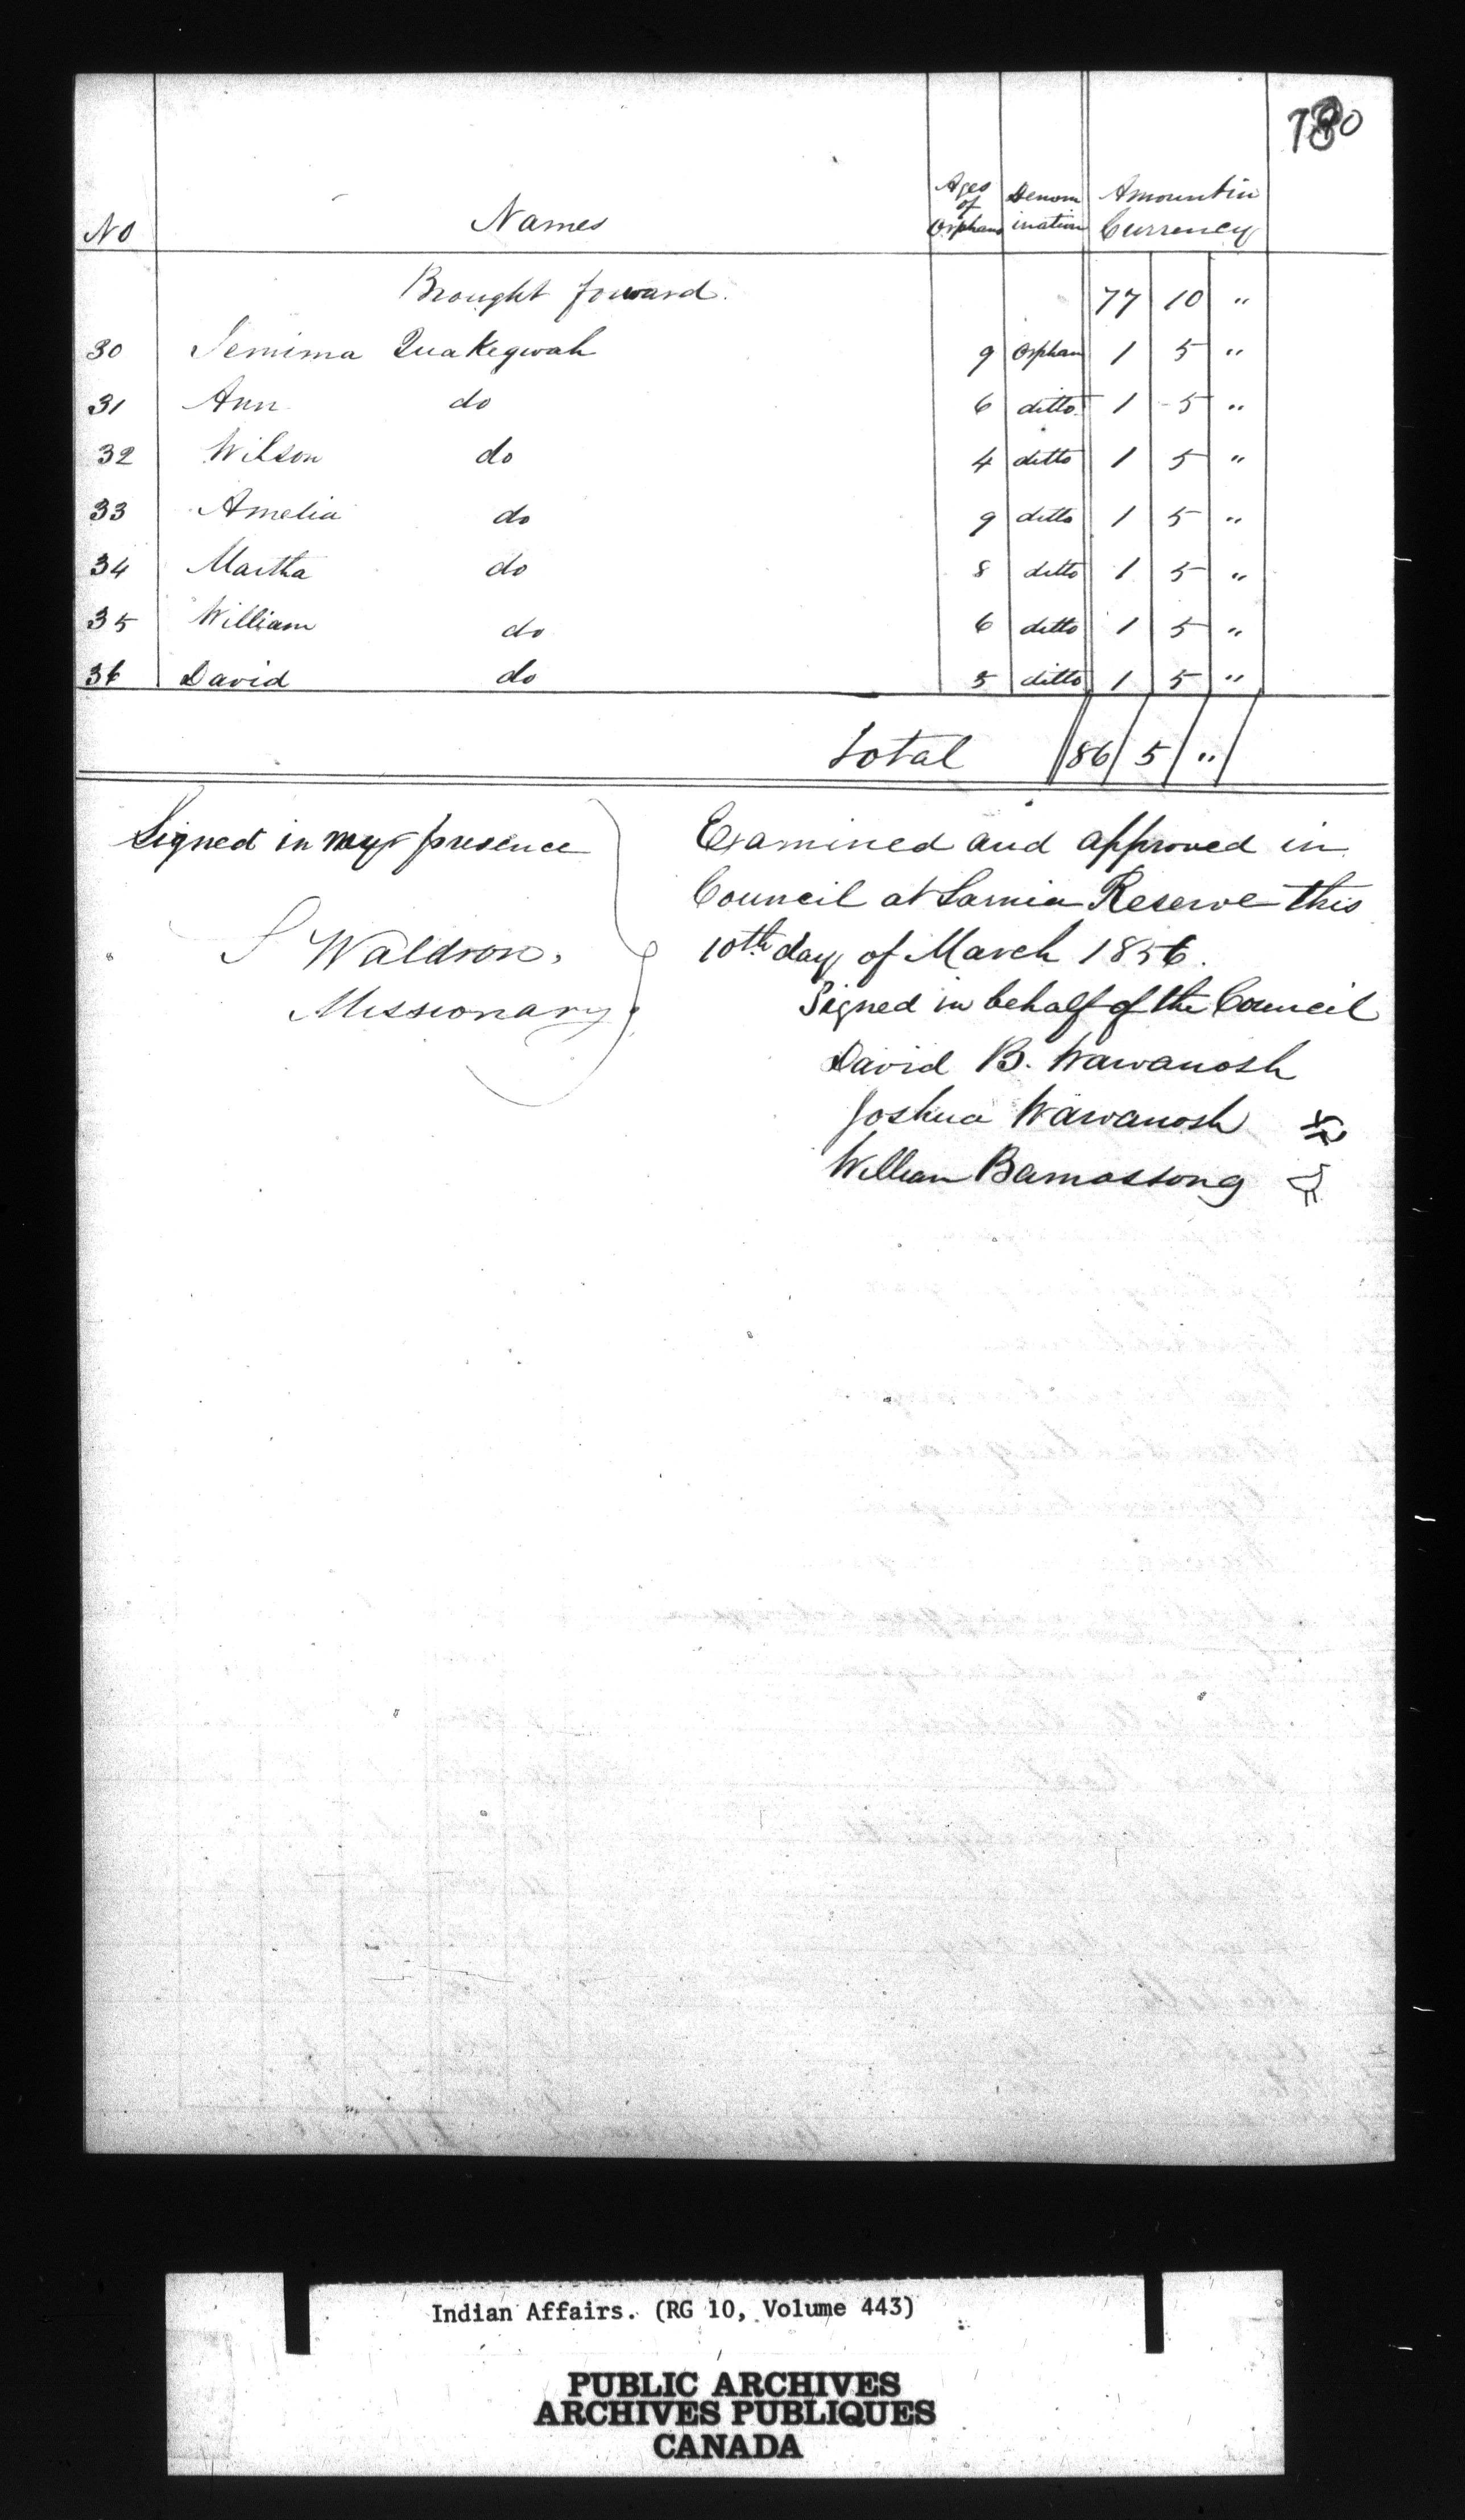 780
No Names Ages of Orphans Denomination Amount in Currency
Brought forward. 77 10 "
30 Jemima Quakegwah 9 Orphan 1 5 "
31 Ann do 6 ditto 1 5 "
32 Wilson do 4 ditto 1 5 "
33 Amelia do 9 ditto 1 5 "
34 Martha do 8 ditto 1 5 "
35 William do 6 ditto 1 5 "
36 David do 5 ditto 1 5 "
total 86 5 "
Signed in my presence
S Waldron,
Missionary
Examined and approved in
Council at Sarnia Reserve this
10th day of March 1856.
Signed in behalf of the Council
David B. Wawanosh
Joshua Wawanosh
William Bamossong
Indian Affairs. (RG 10, Volume 443)
PUBLIC ARCHIVES
ARCHIVES PUBLIQUES
CANADA